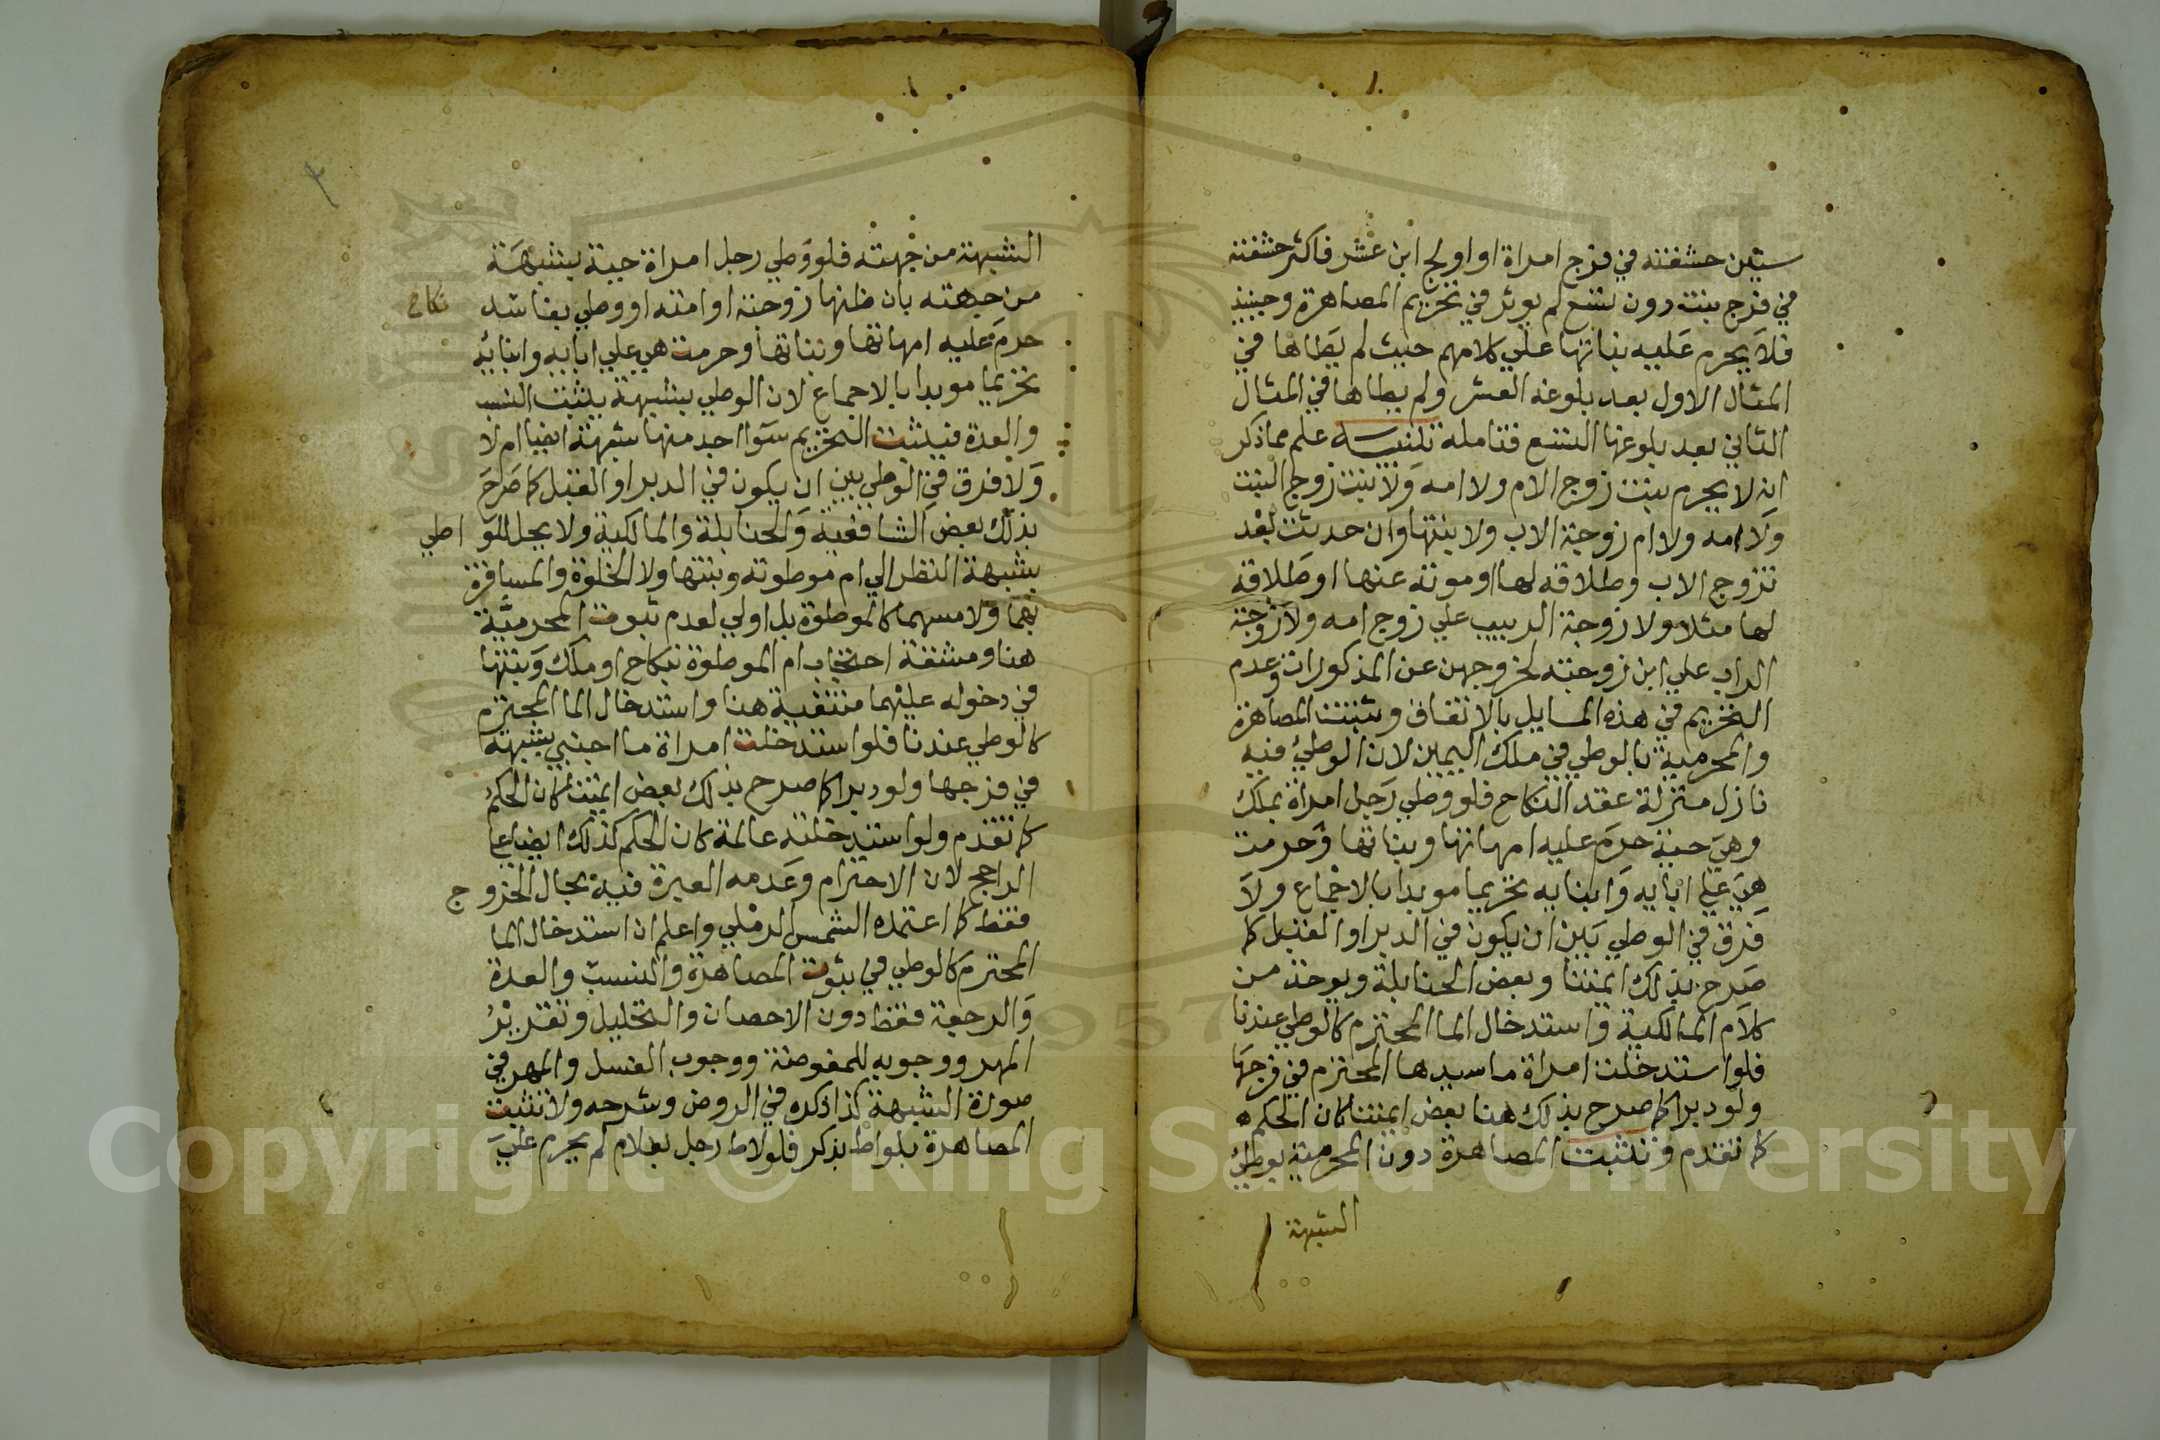 سنين حشفته في فرج امراة او اولج ابن عشر فاكثر حشفته
في فرج بنت دون تسع لم يوثر في تحريم المصاهرة وحينيذ
فلا يحرم عليه بناتها علي كلامهم حيث لم يطاها في
المثال الاول بعد بلوغه العشر ولم يطاها في المثال
الثاني بعد بلوغها التسع فتامله تنبيه علم مما ذكر
انه لا يحرم بنت زوج الام ولا امه ولا بنت زوج البنت
ولا امه ولا ام زوجة الاب ولا بنتها وان حدثت بعد
تزوج الاب وطلاقه لها او موته عنها او طلاقه
لها مثلا ولا زوجة الربيب علي زوج امه ولا زوجة
الراب علي ابن زوجته لخروجهن عن المذكورات وعدم
التحريم في هذه المسايل بالاتفاق وتثبت المصاهرة
والمحرمية بالوطي في ملك اليمين لان الوطي فيه
نازل منزلة عقد النكاح فلو وطي رجل امراة بملك
وهي حية حرم عليه امهاتها وبناتها وحرمت
هي علي ابايه وابنايه تحريما موبدا بالاجماع ولا
فرق في الوطي بين ان يكون في الدبر او القبل كما
صرح بذلك ايمتنا وبعض الحنابلة ويوخذ من
كلام المالكية واستدخال الما المحترم كالوطي عندنا
فلو استدخلت امراة ما سيدها المحترم في فرجها
ولو دبرا كما صرح بذلك هنا بعض ايمتنا كان الحكم
كما تقدم وتثبت المصاهرة دون المحرمية بوطي
الشبهة
الشبهة من جهته فلو وطي رجل امراة حية بشبهة
من جهته بان ظنها زوجته او امته او وطي بفاسد نكاح
حرم عليه امهاتها وبناتها وحرمت هي علي ابايه وابنايه
تحريما موبدا بالاجماع لان الوطي بشبهة يثبت النسب
والعدة فيثبت التحريم سوا اجد منها شبهة ايضا ام لا
ولا فرق في الوطي بين ان يكون في الدبر او القبل كما صرح
بذلك بعض الشافعية والحنابلة والمالكية ولا يحل للواطي
بشبهة النظر الي ام موطوته وبنتها ولا الخلوة والمسافرة
بهما ولا مسهما كالموطوة بل اولي لعدم ثبوت المحرمية
هنا ومشقة احتجاب ام الموطوة بنكاح او ملك وبنتها
في دخوله عليهما منتفية هنا واستدخال الما المحترم
كالوطي عندنا فلو استدخلت امراة ما اجنبي بشبهة
في فرجها ولو دبرا كما صرح بذلك بعض ايمتنا كان الحكم
كما تقدم ولو استدخلته عالمة كان الحكم كذلك ايضا علي
الراجح لان الاحترام وعدمه العبرة فيه بحال الخروج
فقط كما اعتمده الشمس الرملي واعلم ان استدخال الما
المحترم كالوطي في ثبوت المصاهرة والنسب والعدة
والرجعة فقط دون الاحصان والتحليل وتقرير
المهر ووجوبه للمفوضة ووجوب الغسل والمهر في
صورة الشبهة كذا ذكره في الروض وشرحه ولا تثبت
المصاهرة بلواط بذكر فلو لاط رجل بغلام لم يحرم علي
Copyright © King Saud University
1957